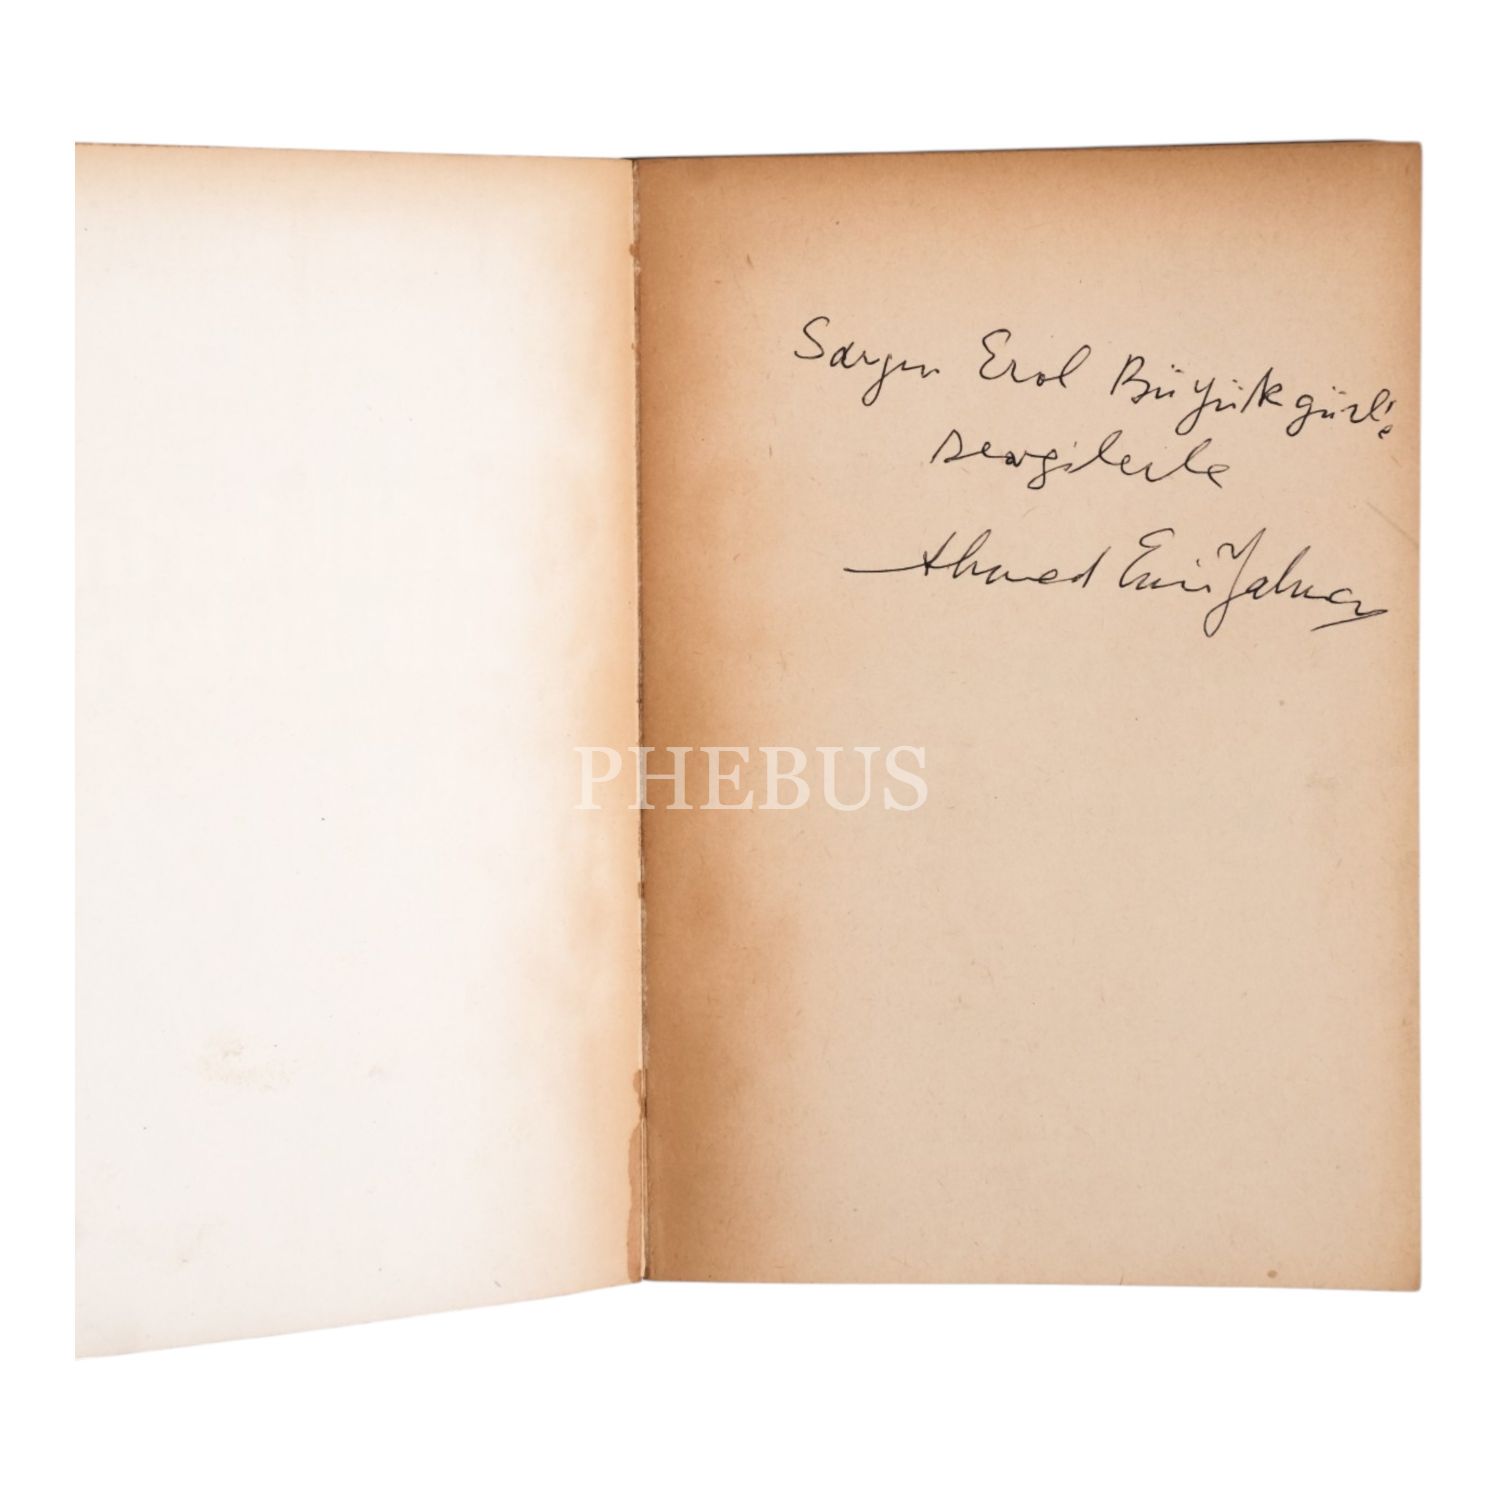 Sayın Erol Büyükgürel'e
sevgilerle
Ahmed Emin Yalman
PHEBUS